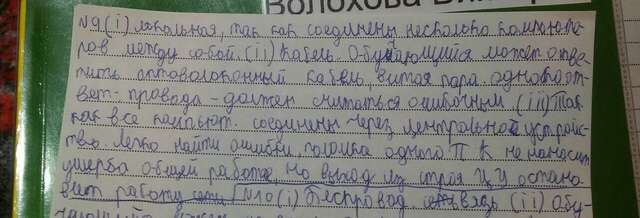 Волохова Викто
№9 (i) локальная, так как соединены несколько компьюте-
ров между собой. (ii) Кабель. Обучающийся может отве-
тить оптоволоконный кабель, витая пара однако от-
вет - провода - должен считаться ошибочным (iii) Так
как все компьют. соединены через центральное устройс-
тво. Легко найти ошибки, поломка одного ПК не наносит
ущерба общей работе, но выход из строя ЦУ остано-
вит работу сети №10 (i) Беспровод связь (ii) Обу-